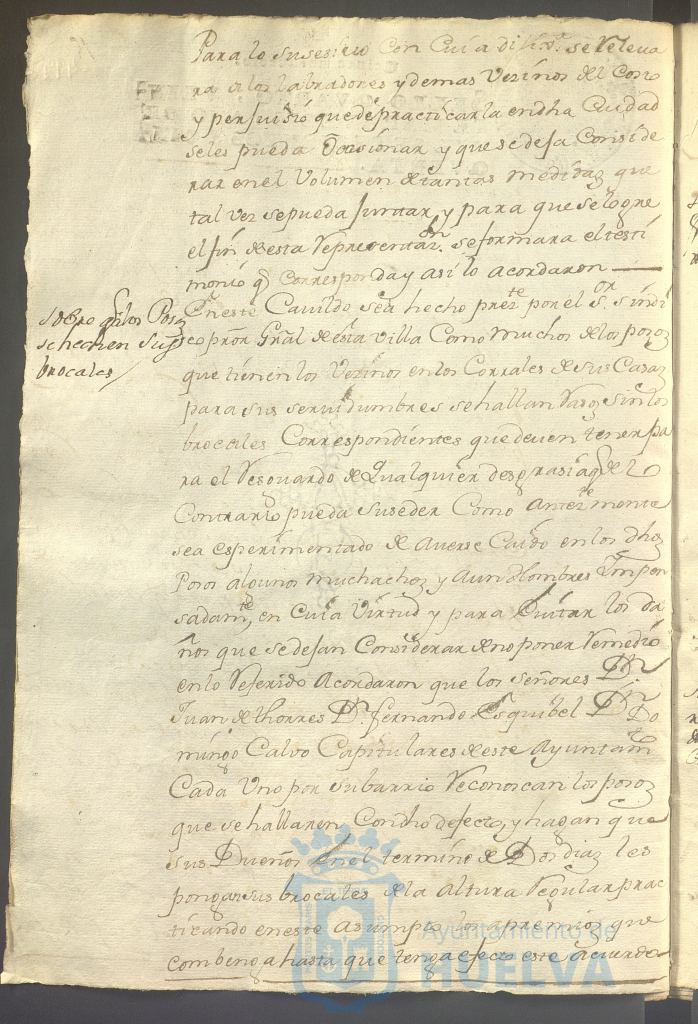 Para lo susesivo con Cuia dilixª. se releua
ra a los labradores y demas Vezinos del
y perjuisio que de practicarla en dha Ciudad
se les pueda ocasionar y que se deja Conside
rar en el Volumen de tantas medidas que
tal vez se pueda juntar, y para que se logre
el fin de esta Representaon. se formara el testi
monio q Corresponda y asi lo acordaron
sobre q los Pos
se hechen sus
brocales
En este Cavildo se a hecho preste por el Sor. sindi
co pror Gral de esta villa Como muchos de los pozos
que tienen los Vezinos en los Corrales de sus Casas
para sus servidumbres se hallan sin los
brocales Correspondientes que deven tener pa
ra el Resguardo de qualquier desgrasia q de lo
Contrario pueda suseder Como anterte monte
se a esperimentado de averse Caido en los dhos
Posos algunos muchachos y aun hombres Ympen
sadamte, en Cuia Virtud y para Evitar los da
ños que se dejan Considerar de no poner Remedio
en lo Referido Acordaron que los señores Dn
Juan de thorres Dn. fernando Esquibel Dn Do
mingo Calvo Capitulares de este Ayuntamto
Cada Uno por su barrio Reconoscan los pozos
que se hallaren Con dho defecto, y hagan que
sus Dueños en el termino de Dos dias les
pongan sus brocales de la altura Regular prac
ticando en este asumpto los apremios que
combenga hasta que tenga efecto este acuerdo
Ayuntamiento de
HUELVA